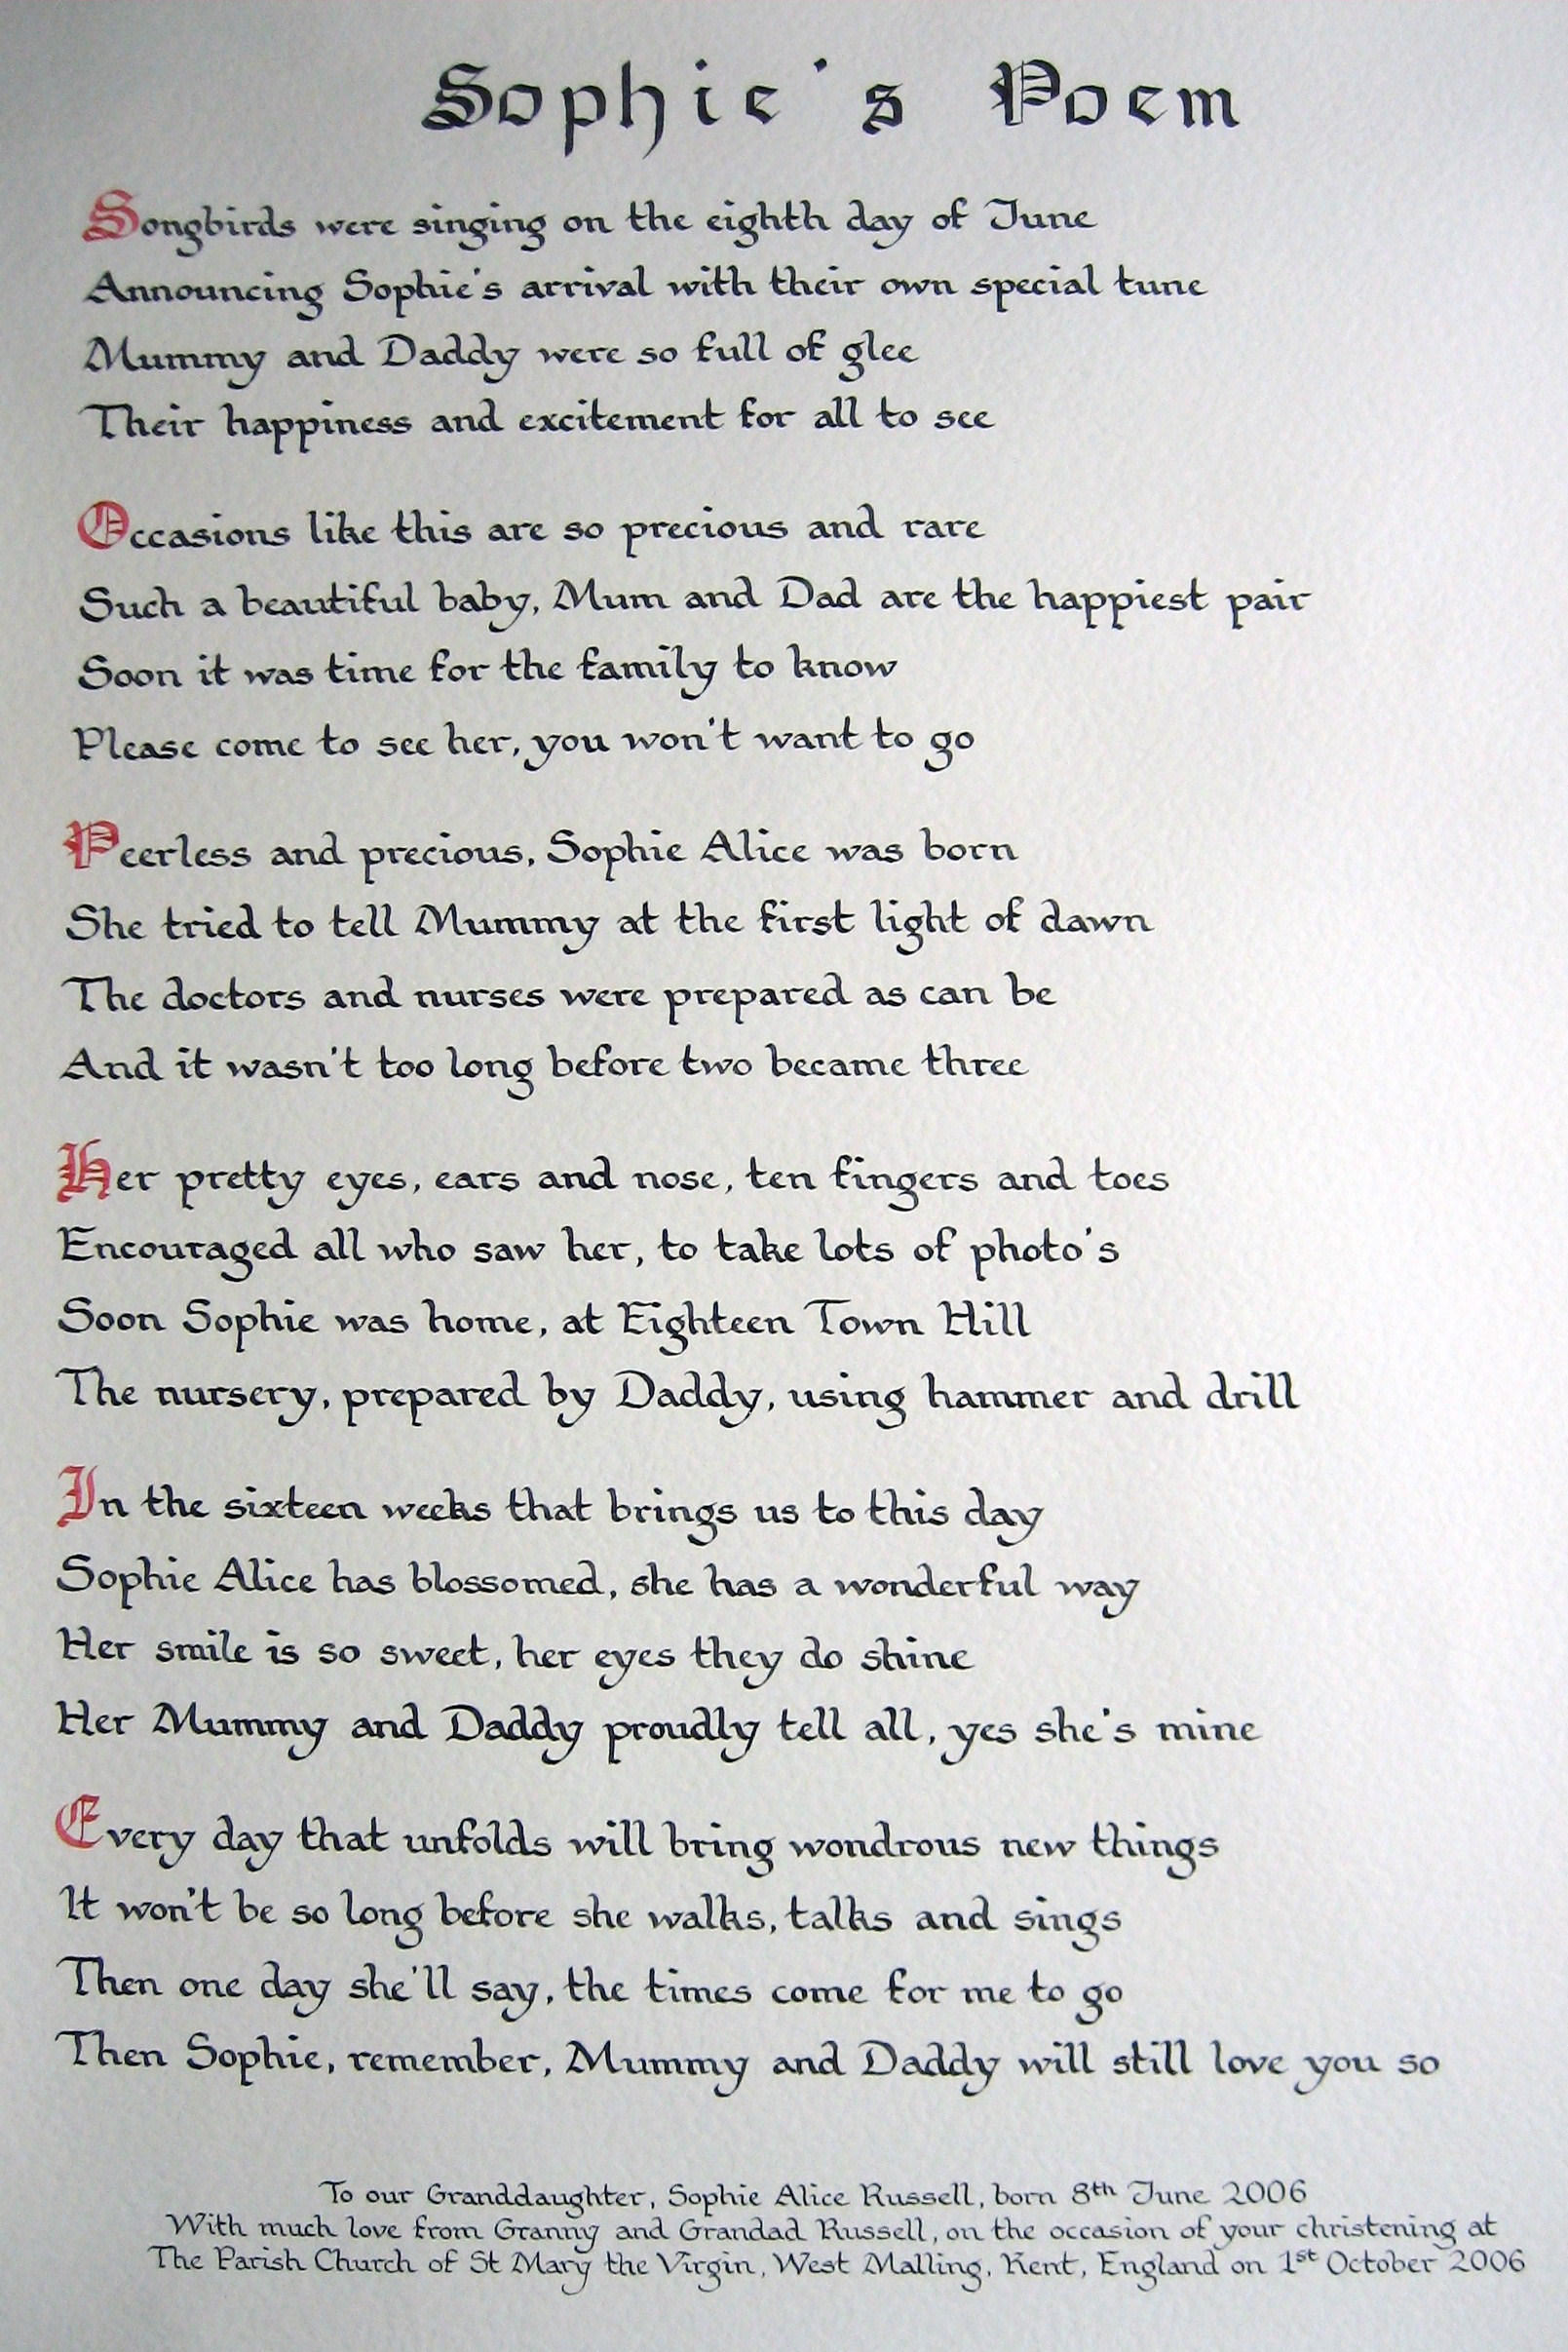 Sophie's Poem
Songbirds were singing on the eighth day of June
Announcing Sophie's arrival with their own special tune
Mummy and Daddy were so full of glee
Their happiness and excitement for all to see
Occasions like this are so precious and rare
Such a beautiful baby, Mum and Dad are the happiest pair
Soon it was time for the family to know
Please come to see her, you won't want to go
Peerless and precious, Sophie Alice was born
She tried to tell Mummy at the first light of dawn
The doctors and nurses were prepared as can be
And it wasn't too long before two became three
Her pretty eyes, ears and nose, ten fingers and toes
Encouraged all who saw her, to take lots of photo's
Soon Sophie was home, at Eighteen Town Hill
The nursery, prepared by Daddy, using hammer and drill
In the sixteen weeks that brings us to this day
Sophie Alice has blossomed, she has a wonderful way
Her smile is so sweet, her eyes they do shine
Her Mummy and Daddy proudly tell all, yes she's mine
Every day that unfolds will bring wondrous new things
It won't be so long before she walks, talks and sings
Then one day she'll say, the times come for me to go
Then Sophie, remember, Mummy and Daddy will still love you so
To our Granddaughter, Sophie Alice Russell, born 8th June 2006
With much love from Granny and Grandad Russell, on the occasion of your christening at
The Parish Church of St Mary the Virgin, West Malling, Kent, England on 1st October 2006